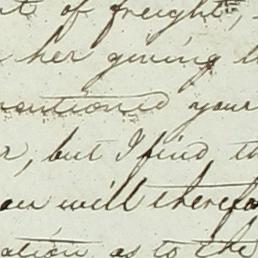 of freight,
her giving
mentioned your
, but I find th
will therefo
ation as to the